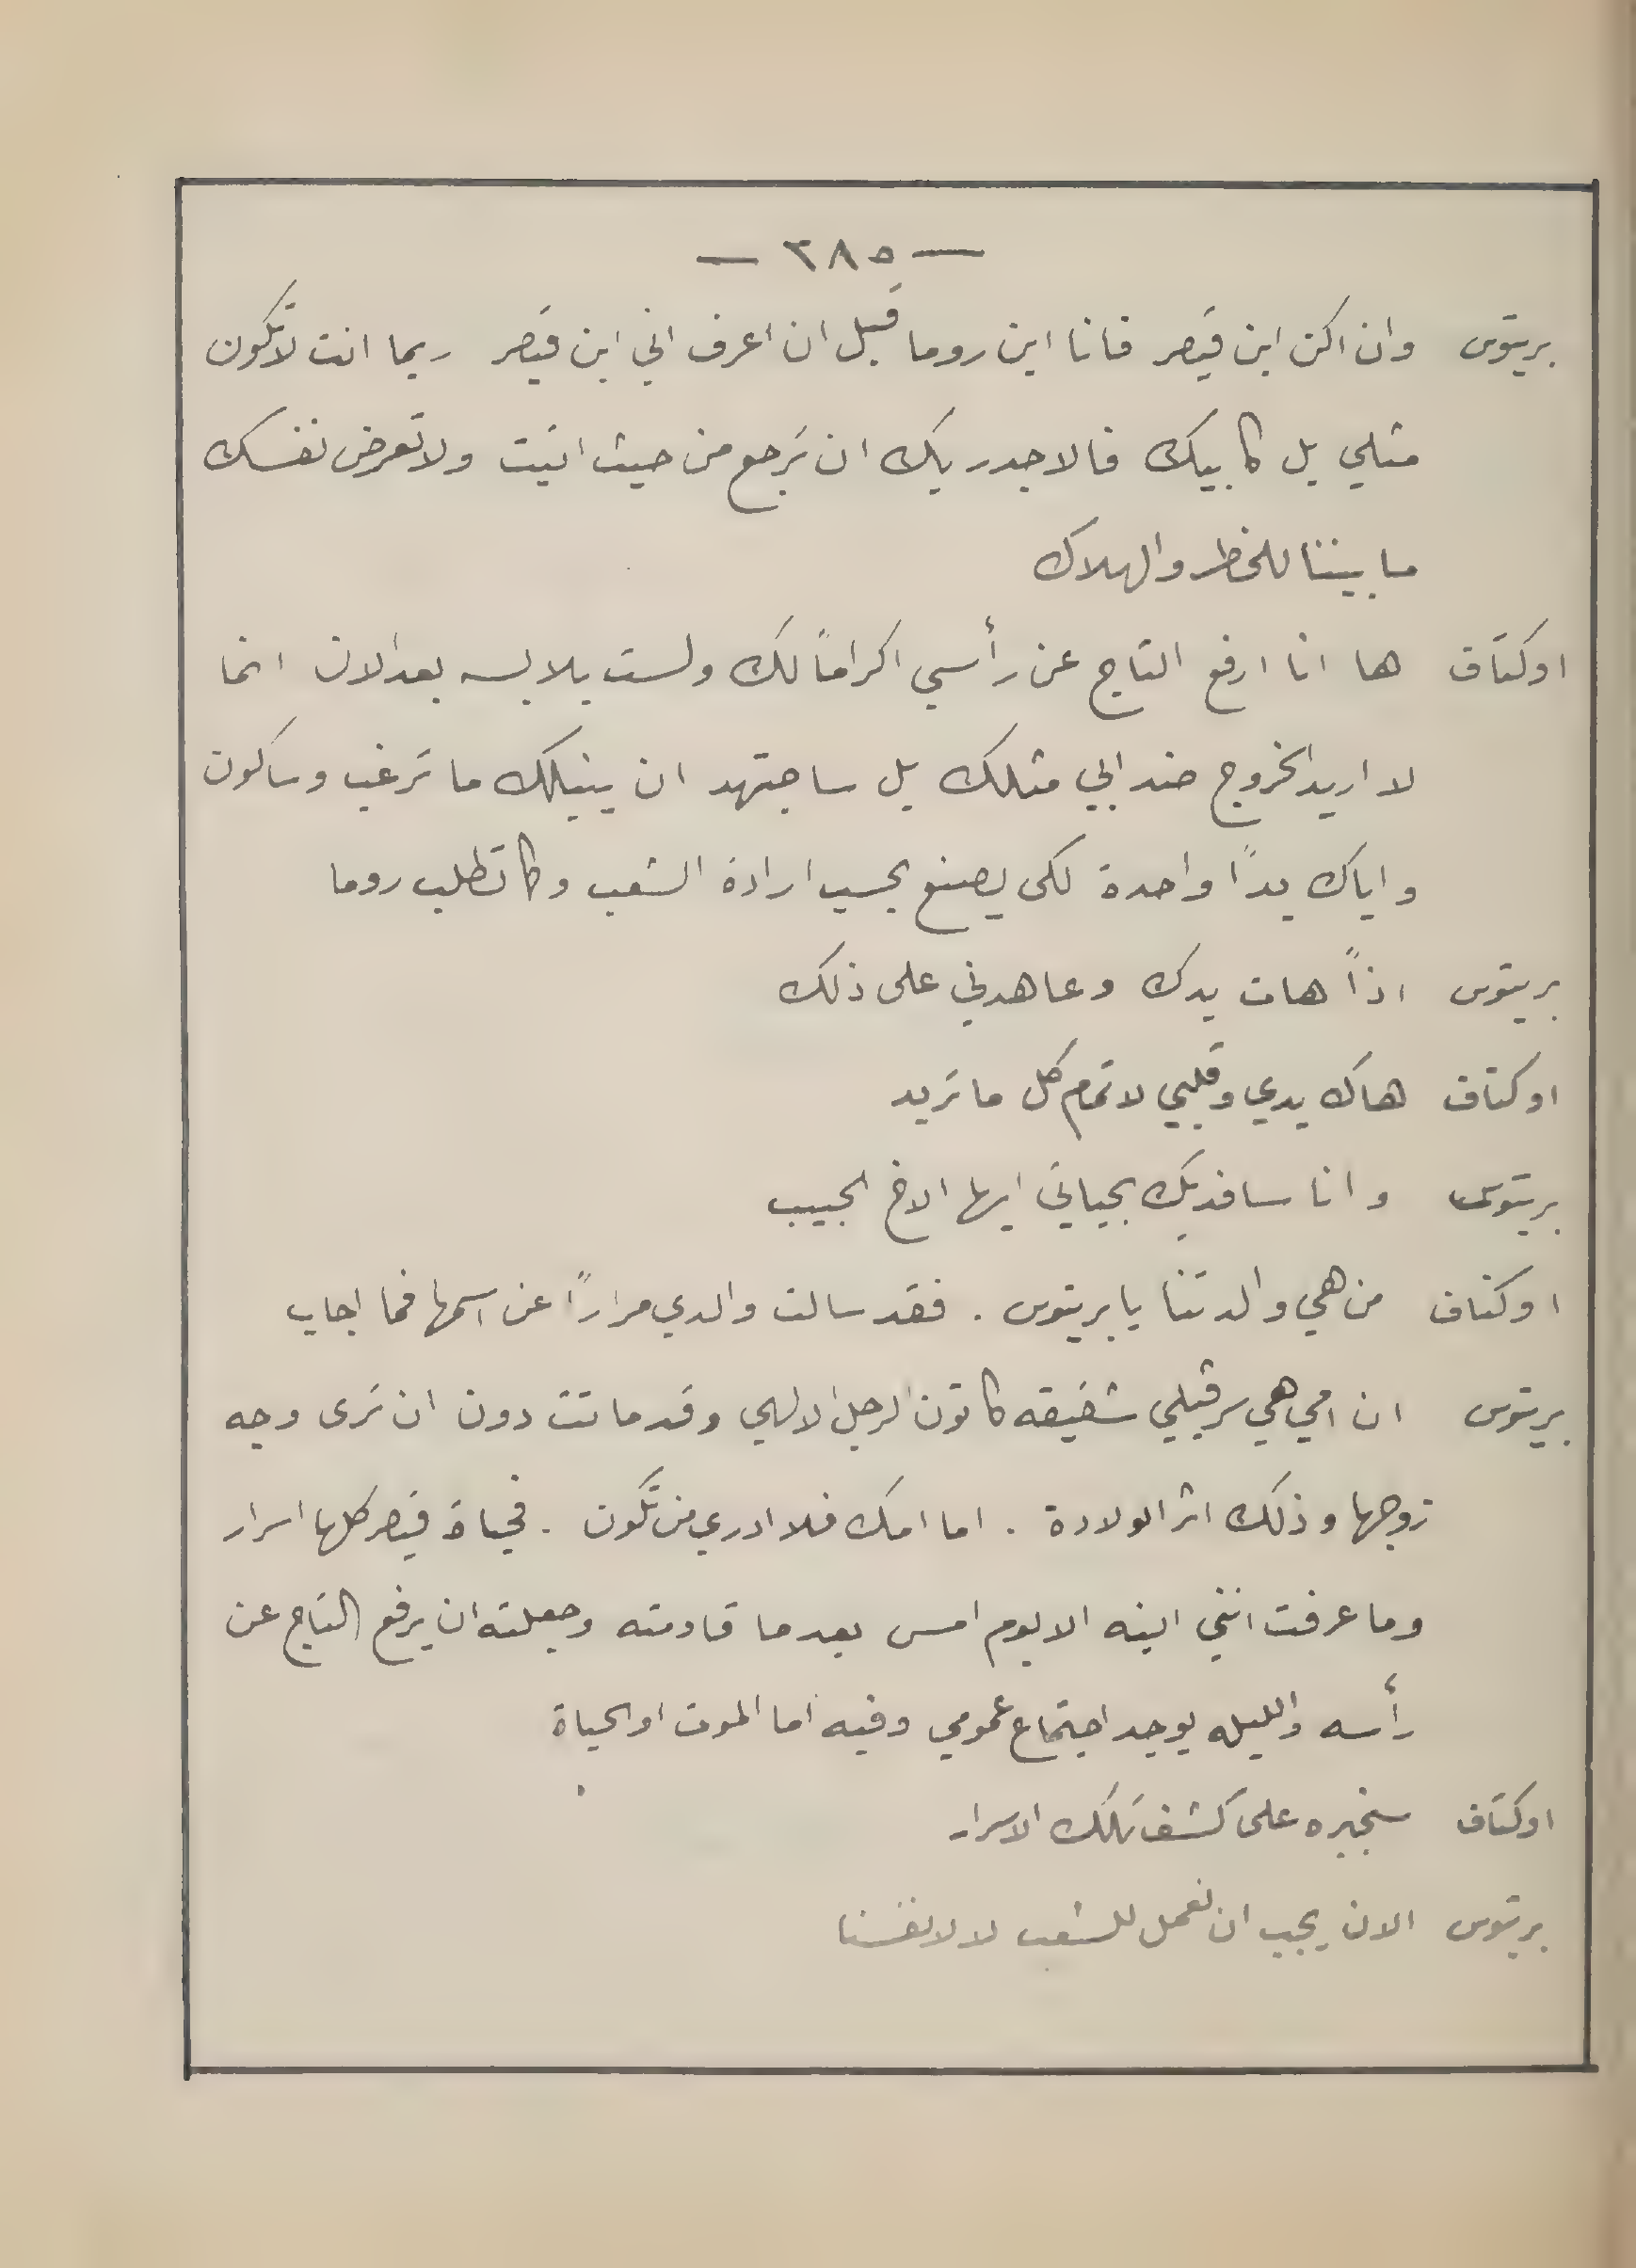 — ٢٨٥ —
بريتوس وان اكن ابن قيصر فانا ابن روما قبل ان اعرف اني ابن قيصر ربما انت لا تكون
مثلي بل كابيك فالاجدر بك ان ترجع من حيث اتيت ولا تعرض نفسك
ما بيننا للخطر والهلاك
اوكتاف ها انا ارفع التاج عن رأسي اكراماً لك ولست بلابسه بعد الان انما
لا اريد الخروج ضد ابي مثلك بل ساجتهد ان ينيلك ما ترغب وساكون
واياك يداً واحدة لكي يصنع بحسب ارادة الشعب وكما تطلب روما
بريتوس اذاً هات يدك وعاهدني على ذلك
اوكتاف هاك يدي وقلبي لاتمام كل ما تريد
بريتوس وانا سافديك بحياتي ايها الاخ الحبيب
اوكتاف من هي والدتنا يا بريتوس . فقد سالت والدي مراراً عن اسمها فما اجاب
بريتوس ان امي هي سرفيلي شقيقه كاتون الرجل الالهي وقد ماتت دون ان ترى وجه
زوجها وذلك اثر الولادة . اما امك فلا ادري من تكون . فحياة قيصر كلها اسرار
وما عرفت انني ابنه الا يوم امس بعدما قاومته وجعلته ان يرفع التاج عن
رأسه والليله يوجد اجتماع عمومي وفيه اما الموت او الحياة
اوكتاف سنجبره على كشف تلك الاسرار
بريتوس الان يجب ان نعمل للشعب لا لانفسنا